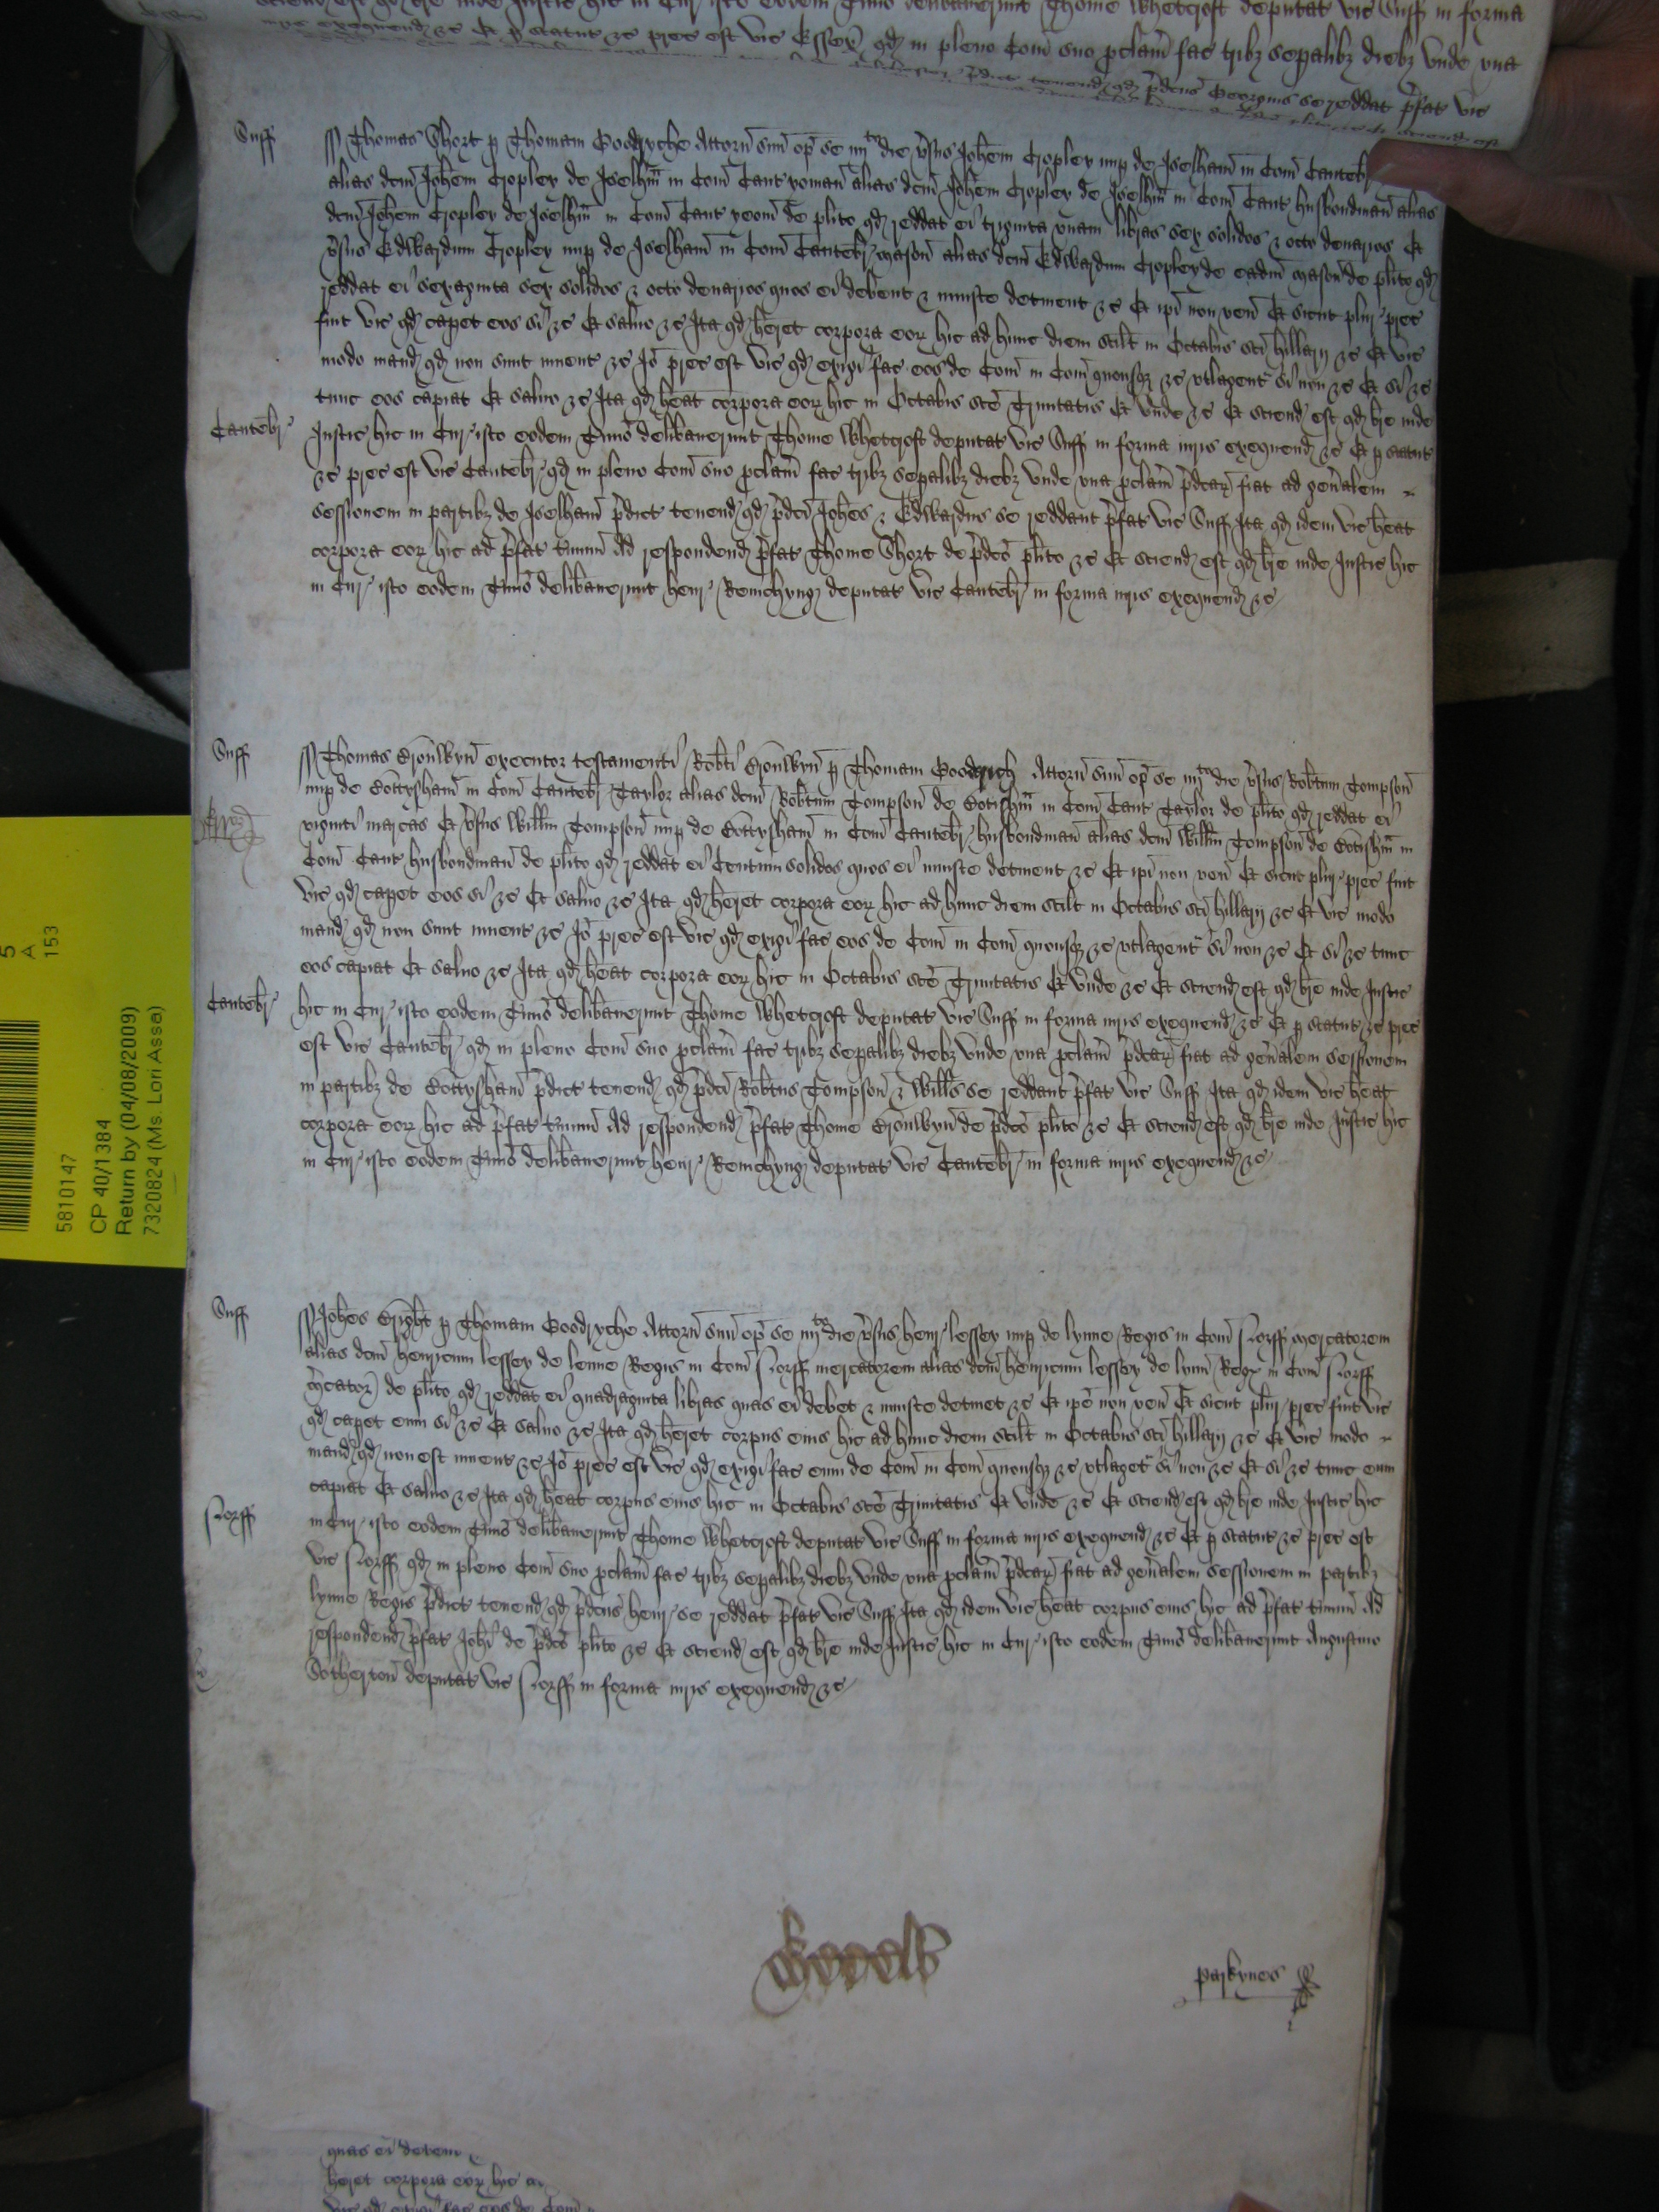 in forma
iuris exequend zc Et p statut zc prec est vic Essex qd in pleno Com suo pclam fac tribz sepalibz diebz unde una
pdict tenend qd pdcus Georgius se reddat pfat vic
Suff
Thomas Short p Thomam Goodryche Attorn suu op se iiijto die vsus Johem Cropley nup de Iselham in Com Cantebr
alias dcm Johem Cropley de Iselhm in Com Cant yoman alias dcm Johem Cropley de Iselhm in Com Cant husbondman alias
dcm Johem Cropley de Iselhm in Com Cant yeom de plito qd reddat ei triginta unam libras sex solidos z octo denarios Et
vsus Edwardum Cropley nup de Iselham in Com Cantebr mason alias dcm Edwardum Cropley de eadm mason de plito qd
reddat ei sexaginta sex solidos z octo denarios quos ei debent z iniuste detinent zc Et ipi non ven Et sicut plur prec
fuit vic qd capet eos si zc Et salvo zc Ita qd heret corpora eor hic ad hunc diem scilt in Octabis sci hillarij zc Et vic
modo mand qd non sunt invent zc Io prec est vic qd exigi fac eos de Com in Com quousqz zc utlagent si non zc Et si zc
tunc eos capiat Et salvo zc Ita qd heat corpora eor hic in Octabis sce Trinitatis Et unde zc Et sciend est qd bre inde
Cantebr
Justic hic in Cur isto eodem Timo delibaverunt Thome Whetcroft deputat vic Suff in forma iuris exequend zc Et p statut
zc prec est vic Cantebr qd in pleno Com suo pclam fac tribz sepalibz diebz unde una pclam pdcar fiat ad genalem
sessionem in partibz de Iselham pdict tenend qd pdci Johes z Edwardus se reddant pfat vic Suff Ita qd idem vic heat
corpora eor hic ad pfat timinu Ad respondend pfat Thome Short de pdco plito zc Et sciend est qd bre inde Justic hic
in Cur isto eodem Timo delibaverunt henr Remchyng deputat vic Cantebr in forma iuris exequend zc
Suff
Thomas executor testamenti Robti p Thomam Goodrich Attorn suu op se iiijto die vsus Robtum Tompson
nup de Bottysham in Com Cantebr Taylor alias dcm Robtum Tompson de Botishm in Com Cant Taylor de plito qd reddat ei
viginti marcas Et vsus Willm Tompson nup de Bottysham in Com Cantebr husbondman alias dcm Willm Tompson de Botishm in
Com Cant husbondman de plito qd reddat ei Centum solidos quos ei iniuste detinent zc Et ipi non ven Et sicut plur prec fuit
vic qd capet eos si zc Et salvo zc Ita qd heret corpora eor hic ad hunc diem scilt in Octabis sci hillarij zc Et vic modo
mand qd non sunt invent zc Io prec est vic qd exigi fac eos de Com in Com quousqz zc utlagent si non zc Et si zc tunc
eos capiat Et salvo zc Ita qd heat corpora eor hic in Octabis sce Trinitatis Et unde zc Et sciend est qd bre inde Justic
Cantebr
hic in Cur isto eodem Timo delibaverunt Thome Whetcroft deputat vic Suff in forma iuris exequend zc Et p statut zc prec
est vic Cantebr qd in pleno Com suo pclam fac tribz sepalibz diebz unde una pclam pdcar fiat ad genalem sessionem
in partibz de Bottysham pdict tenend qd pdci Robtus Tompson z Willms se reddant pfat vic Suff Ita qd idem vic heat
corpora eor hic ad pfat timinu Ad respondend pfat Thome de pdco plito zc Et sciend est qd bre inde Justic hic
in Cur isto eodem Timo delibaverunt henr Remchyng deputat vic Cantebr in forma iuris exequend zc
Suff
Johes Bright p Thomam Goodryche Attorn suu op se iiijto die vsus henr lessey nup de lynne Regis in Com Norff mercatorem
alias dcm henricum lessey de lenne Regis in Com Norff mercatorem alias dcm henricum lessey de lynn Regs in Com Norff
mcator de plito qd reddat ei quadraginta libras quas ei debet z iniuste detinet zc Et ipe non ven Et sicut plur prec fuit vic
qd capet eum si zc Et salvo zc Ita qd heret corpus eius hic ad hunc diem scilt in Octabis sci hillarij zc Et vic modo
mand qd non est invent zc Io prec est vic qd exigi fac eum de Com in Com quousqz zc utlaget si non zc Et si zc tunc eum
capiat Et salvo zc Ita qd heat corpus eius hic in Octabis sce Trinitatis Et unde zc Et sciend est qd bre inde Justic hic
Norff
in Cur isto eodem Timo delibaverunt Thome Whetcroft deputat vic Suff in forma iuris exequend zc Et p statut zc prec est
vic Norff qd in pleno Com suo pclam fac tribz sepalibz diebz unde una pclam pdcar fiat ad genalem sessionem in partibz
lynne Regis pdict tenend qd pdcus henr se reddat pfat vic Suff Ita qd idem vic heat corpus eius hic ad pfat timinu Ad
respondend pfat Johi de pdco plito zc Et sciend est qd bre inde Justic hic in Cur isto eodem Timo delibaverunt Augustino
Sotherton deputat vic Norff in forma iuris exequend zc
parkynes
quas ei
heret corpora eor hic
5
A
153
5810147
CP 40/1384
Return by (04/08/2009)
7320824 (Ms. Lori Assa)